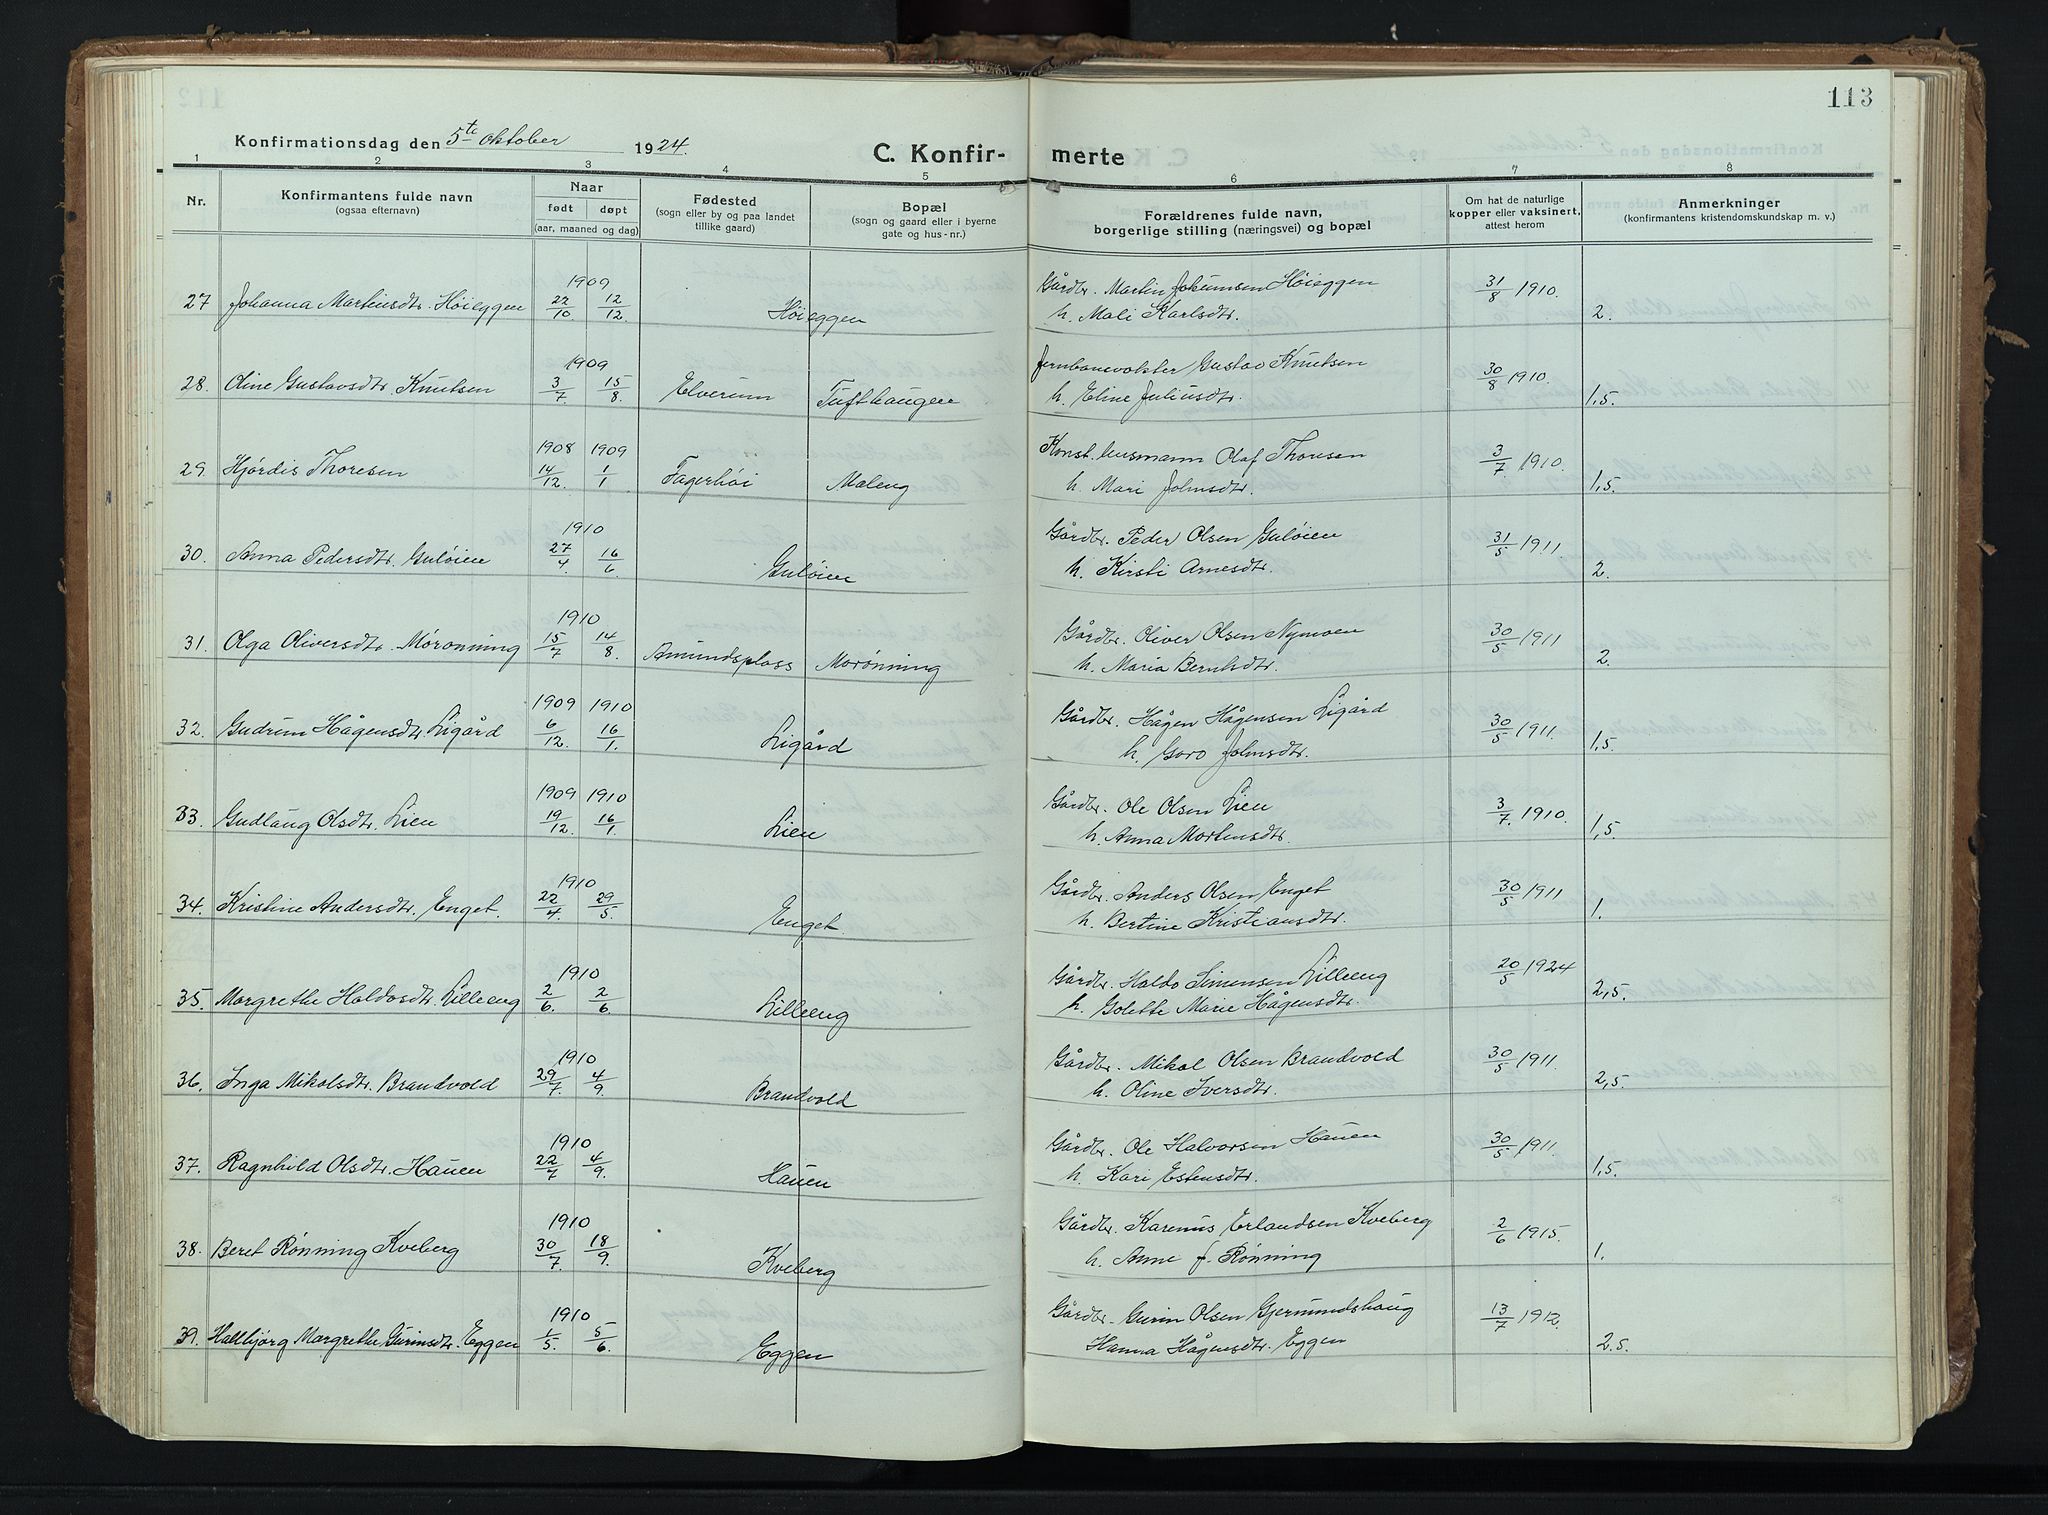 113
Konfirmationsdag den 5te Oktober 1924.
C. Konfir- merte
1 2 3 4 5 6 7 8
Nr.
Konfirmantens fulde navn
(ogsaa efternavn)
Naar
født døpt
(aar, maaned og dag)
Fødested
(sogn eller by og paa landet
tillike gaard)
Bopæl
(sogn og gaard eller i byerne
gate og hus-nr.)
Forældrenes fulde navn,
borgerlige stilling (næringsvei) og bopæl
Om hat de naturlige
kopper eller vaksinert,
attest herom
Anmerkninger
(konfirmantens kristendomskundskap m. v.)
1909
27 Johanna Martinsdtr. Høieggen 22/10 12/12 Høieggen Gårdbr. Martin Johannsen Høieggen 31/8 1910. 2.
h. Mali Karlsdtr.
1909
28. Oline Gustavsdtr. Knutsen 3/7 15/8. Elverum Tufthaugen Jernbanevokter Gustav Knutsen 30/8 1910. 1,5.
h. Eline Juliusdtr.
1908 1909
29. Hjørdis Thoresen 14/12. 1/1 Fagerhøi Maleng Konst. husmann Olaf Thoresen 3/7 1910. 1,5.
h. Mari Johnsdtr.
1910
30. Anna Pedersdtr. Guløien 27/4 16/6 Guløien Gårdbr. Peder Olsen Guløien 31/5 1911. 2.
h. Kirsti Arnesdtr.
1910
31. Olga Oliversdtr. Mørønning 15/7 14/8 Amundsplass Morønning Gårdbr. Oliver Olsen Nymoen 30/5 1911 2.
h. Maria Bernhsdtr.
1909 1910
32. Gudrun Hågensdtr. Ligård 6/12. 16/1. Ligård Gårdbr. Hågen Hågensen Ligård 30/5 1911. 1,5.
h. Goro Johnsdtr.
1909 1910
33. Gudlaug Olsdtr. Lien 19/12. 16/1. Lien Gårdbr. Ole Olsen Lien 3/7. 1910. 1,5.
h. Anna Mortensdtr.
1910
34. Kristine Andersdtr. Enget. 22/4. 29/5. Enget. Gårdbr. Anders Olsen Enget 30/5 1911 1.
h. Bertine Kristiansdtr.
1910
35. Margrethe Haldosdtr. Lilleeng 2/6. 2/6 Lilleeng Gårdbr. Haldo Simensen Lilleeng 20/5 1924 2,5.
h. Golette Marie Hågensdtr.
1910
36. Inga Mikalsdtr. Brandvold 29/7. 4/9. Brandvold Gårdbr. Mikal Olsen Brandvold 30/5 1911. 2,5.
h. Oline Iversdtr.
1910
37. Ragnhild Olsdtr. Hauen 22/7 4/9. Hauen Gårdbr. Ole Halvorsen Hauen 30/5 1911. 1,5.
h. Kari Estensdtr.
1910
38. Beret Rønning Kveberg 30/7. 18/9. Kveberg Gårdbr. Karenus Erlandsen Kveberg 2/6 1915. 1.
h. Anne f. Rønning
1910
39. Hallbjørg Margrethe Gurinsdtr. Eggen 1/5. 5/6. Eggen Gårdbr. Gurin Olsen Gjermundshaug 13/7 1912. 2.5.
Hanna Hågensdtr. Eggen